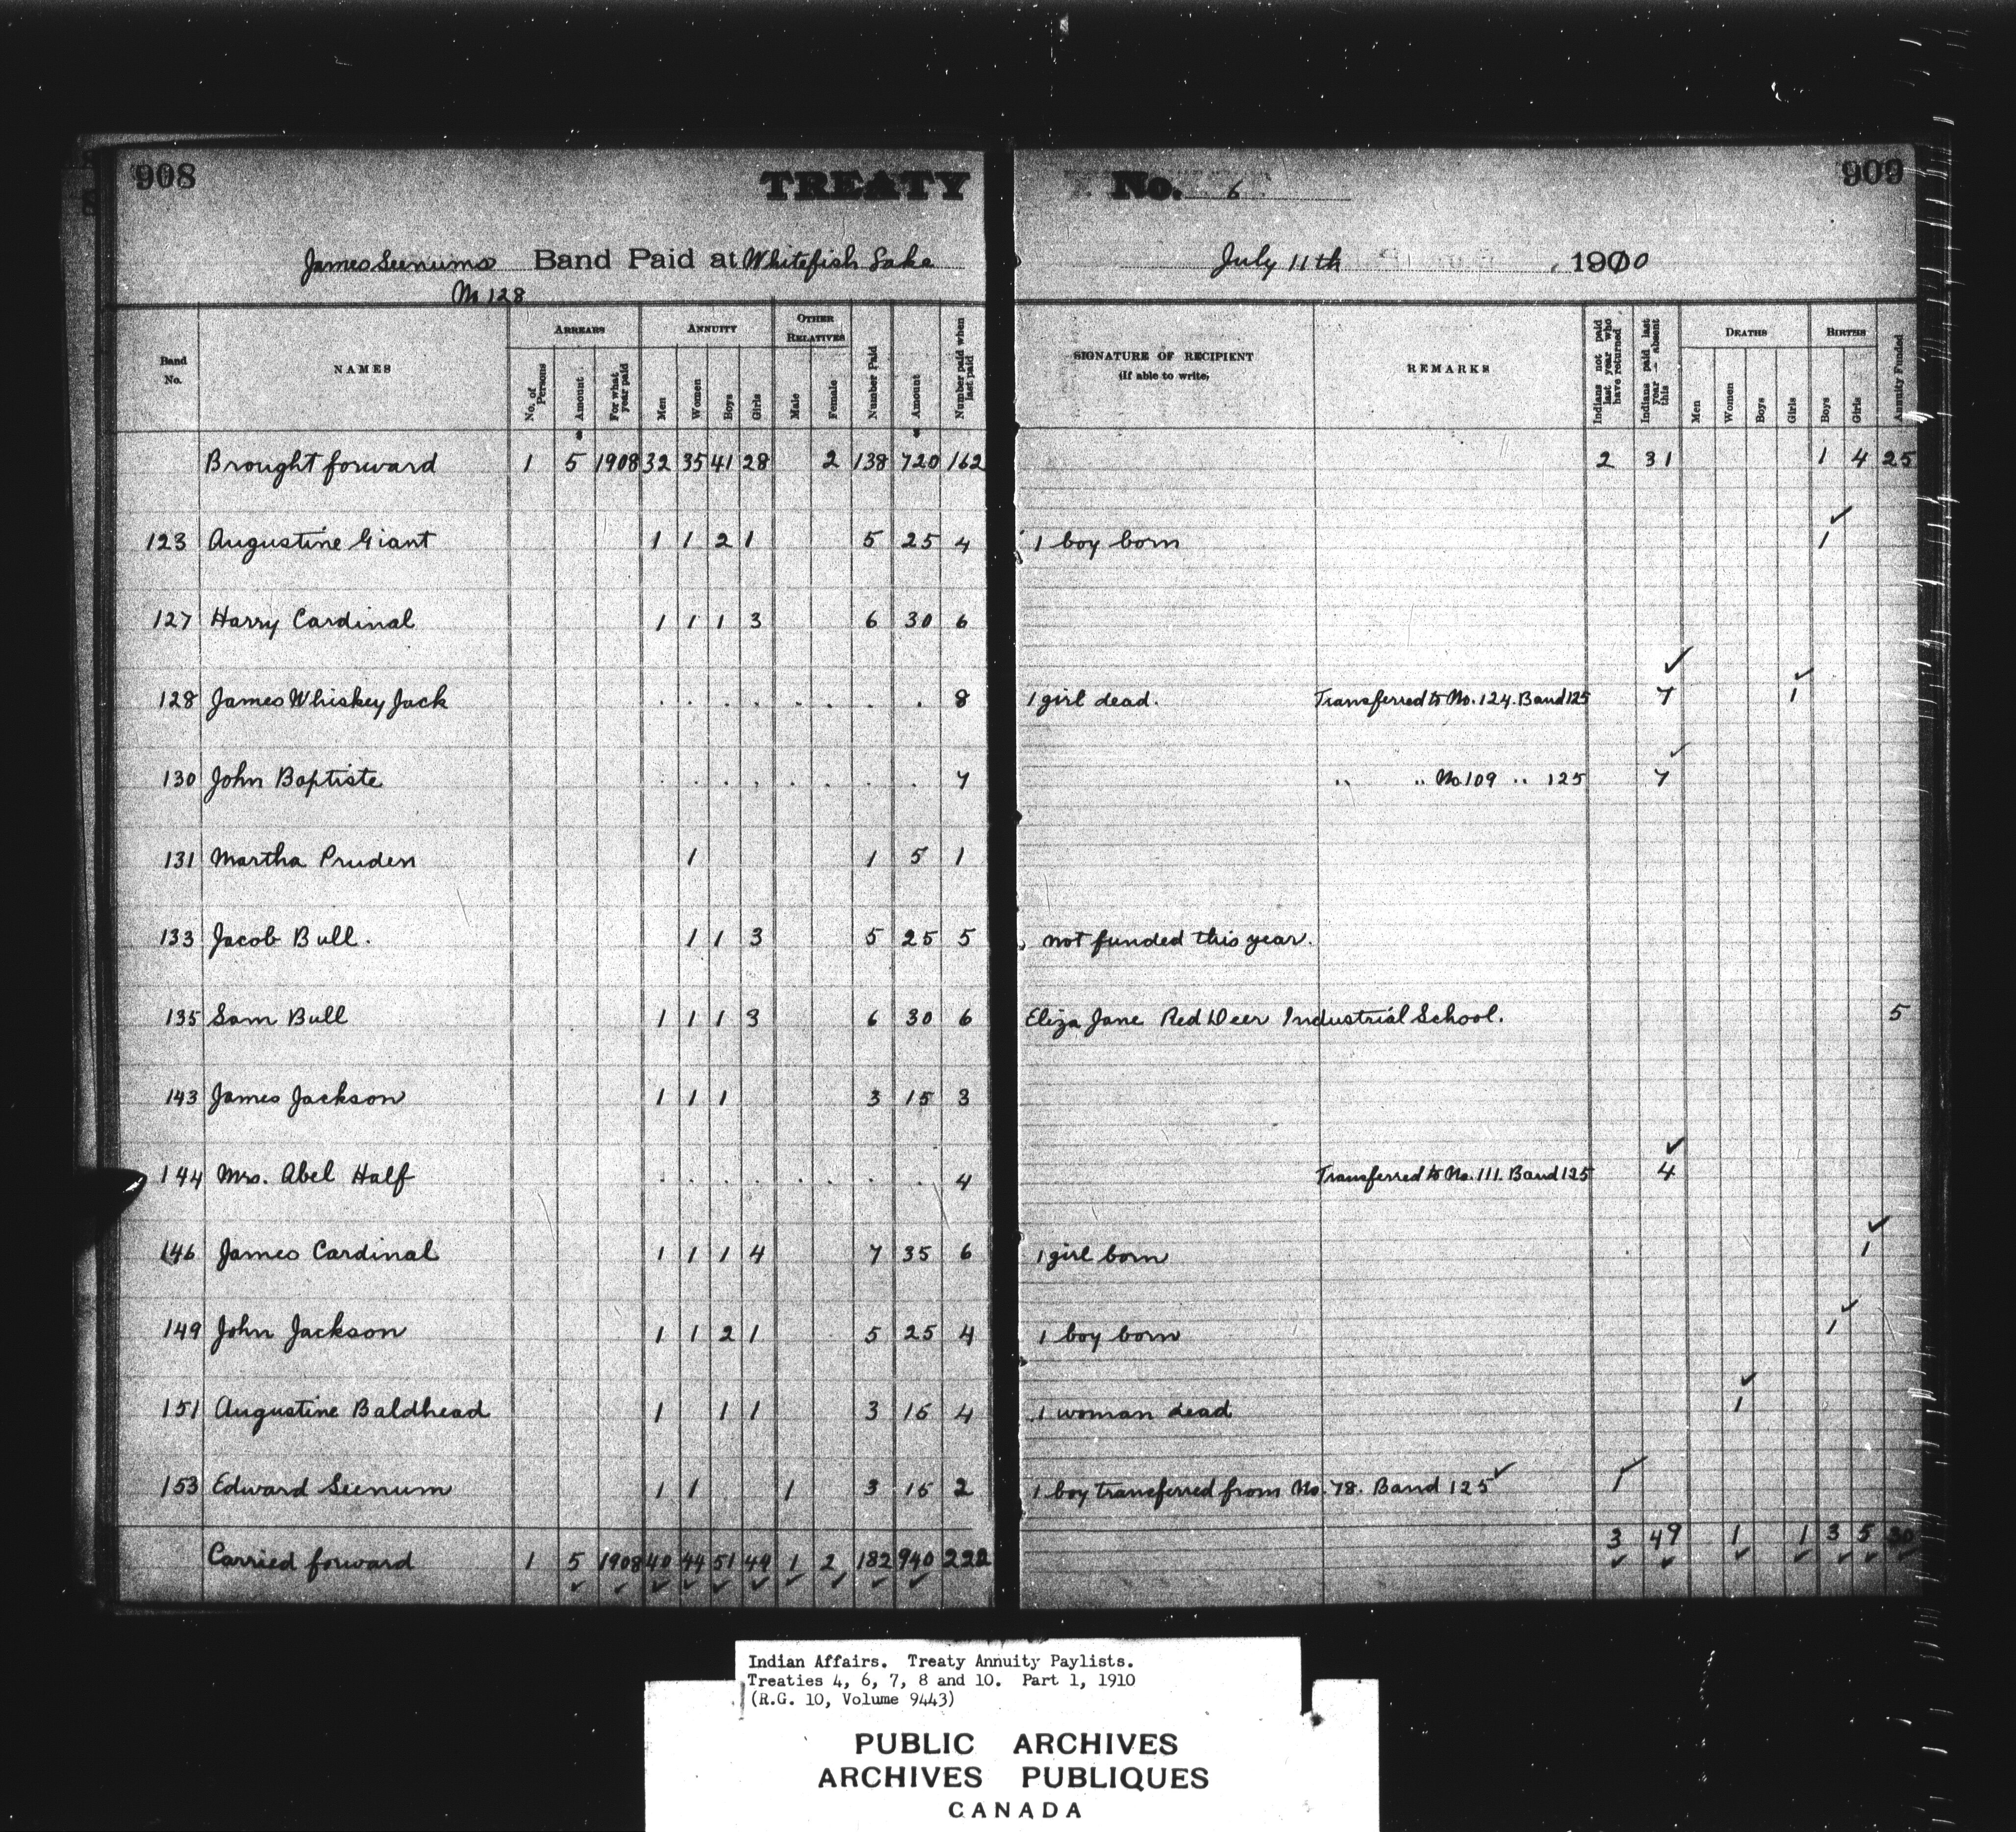 908
TREATY
No. 6
909
James Seenums Band Paid at Whitefish Lake
July 11th 1910
No 128
Band No.
NAMES
ARREARS
No. of Persons
Amount
For what year paid
ANNUITY
Men
Women
Boys
Girls
OTHER RELATIVES
Male
Female
Number Paid
Amount
Number paid when last paid
SIGNATURE OF RECIPIENT
(If able to write)
REMARKS
Indians not paid last year who have returned
Indians paid last year — absent this
DEATHS
Men
Women
Boys
Girls
BIRTHS
Boys
Girls
Annuity Funded
Brought forward 1 5 1908 32 35 41 28 2 138 720 162 2 31 1 4 25
123 Augustine Giant 1 1 2 1 5 25 4 1 boy born 1
127 Harry Cardinal 1 1 1 3 6 30 6
128 James Whiskey Jack . . . . . . . . 8 1 girl dead. Transferred to No. 124. Band 125 7 1
130 John Baptiste . . . . . . . . 7 " " No 109 " 125 7
131 Martha Pruden 1 1 5 1
133 Jacob Bull. 1 1 3 5 25 5 not funded this year.
135 Sam Bull 1 1 1 3 6 30 6 Eliza Jane Red Deer Industrial School. 5
143 James Jackson 1 1 1 3 15 3
144 Mrs. Abel Half . . . . . . . . 4 Transferred to No. 111. Band 125 4
146 James Cardinal 1 1 1 4 7 35 6 1 girl born 1
149 John Jackson 1 1 2 1 5 25 4 1 boy born 1
151 Augustine Baldhead 1 1 1 3 15 4 1 woman dead 1
153 Edward Seenum 1 1 1 3 15 2 1 boy transferred from No. 78. Band 125 1
3 49 1 1 3 5 30
Carried forward 1 5 1908 40 44 51 44 1 2 182 940 222
Indian Affairs. Treaty Annuity Paylists.
Treaties 4, 6, 7, 8 and 10. Part 1, 1910
(R.G. 10, Volume 9443)
PUBLIC ARCHIVES
ARCHIVES PUBLIQUES
CANADA